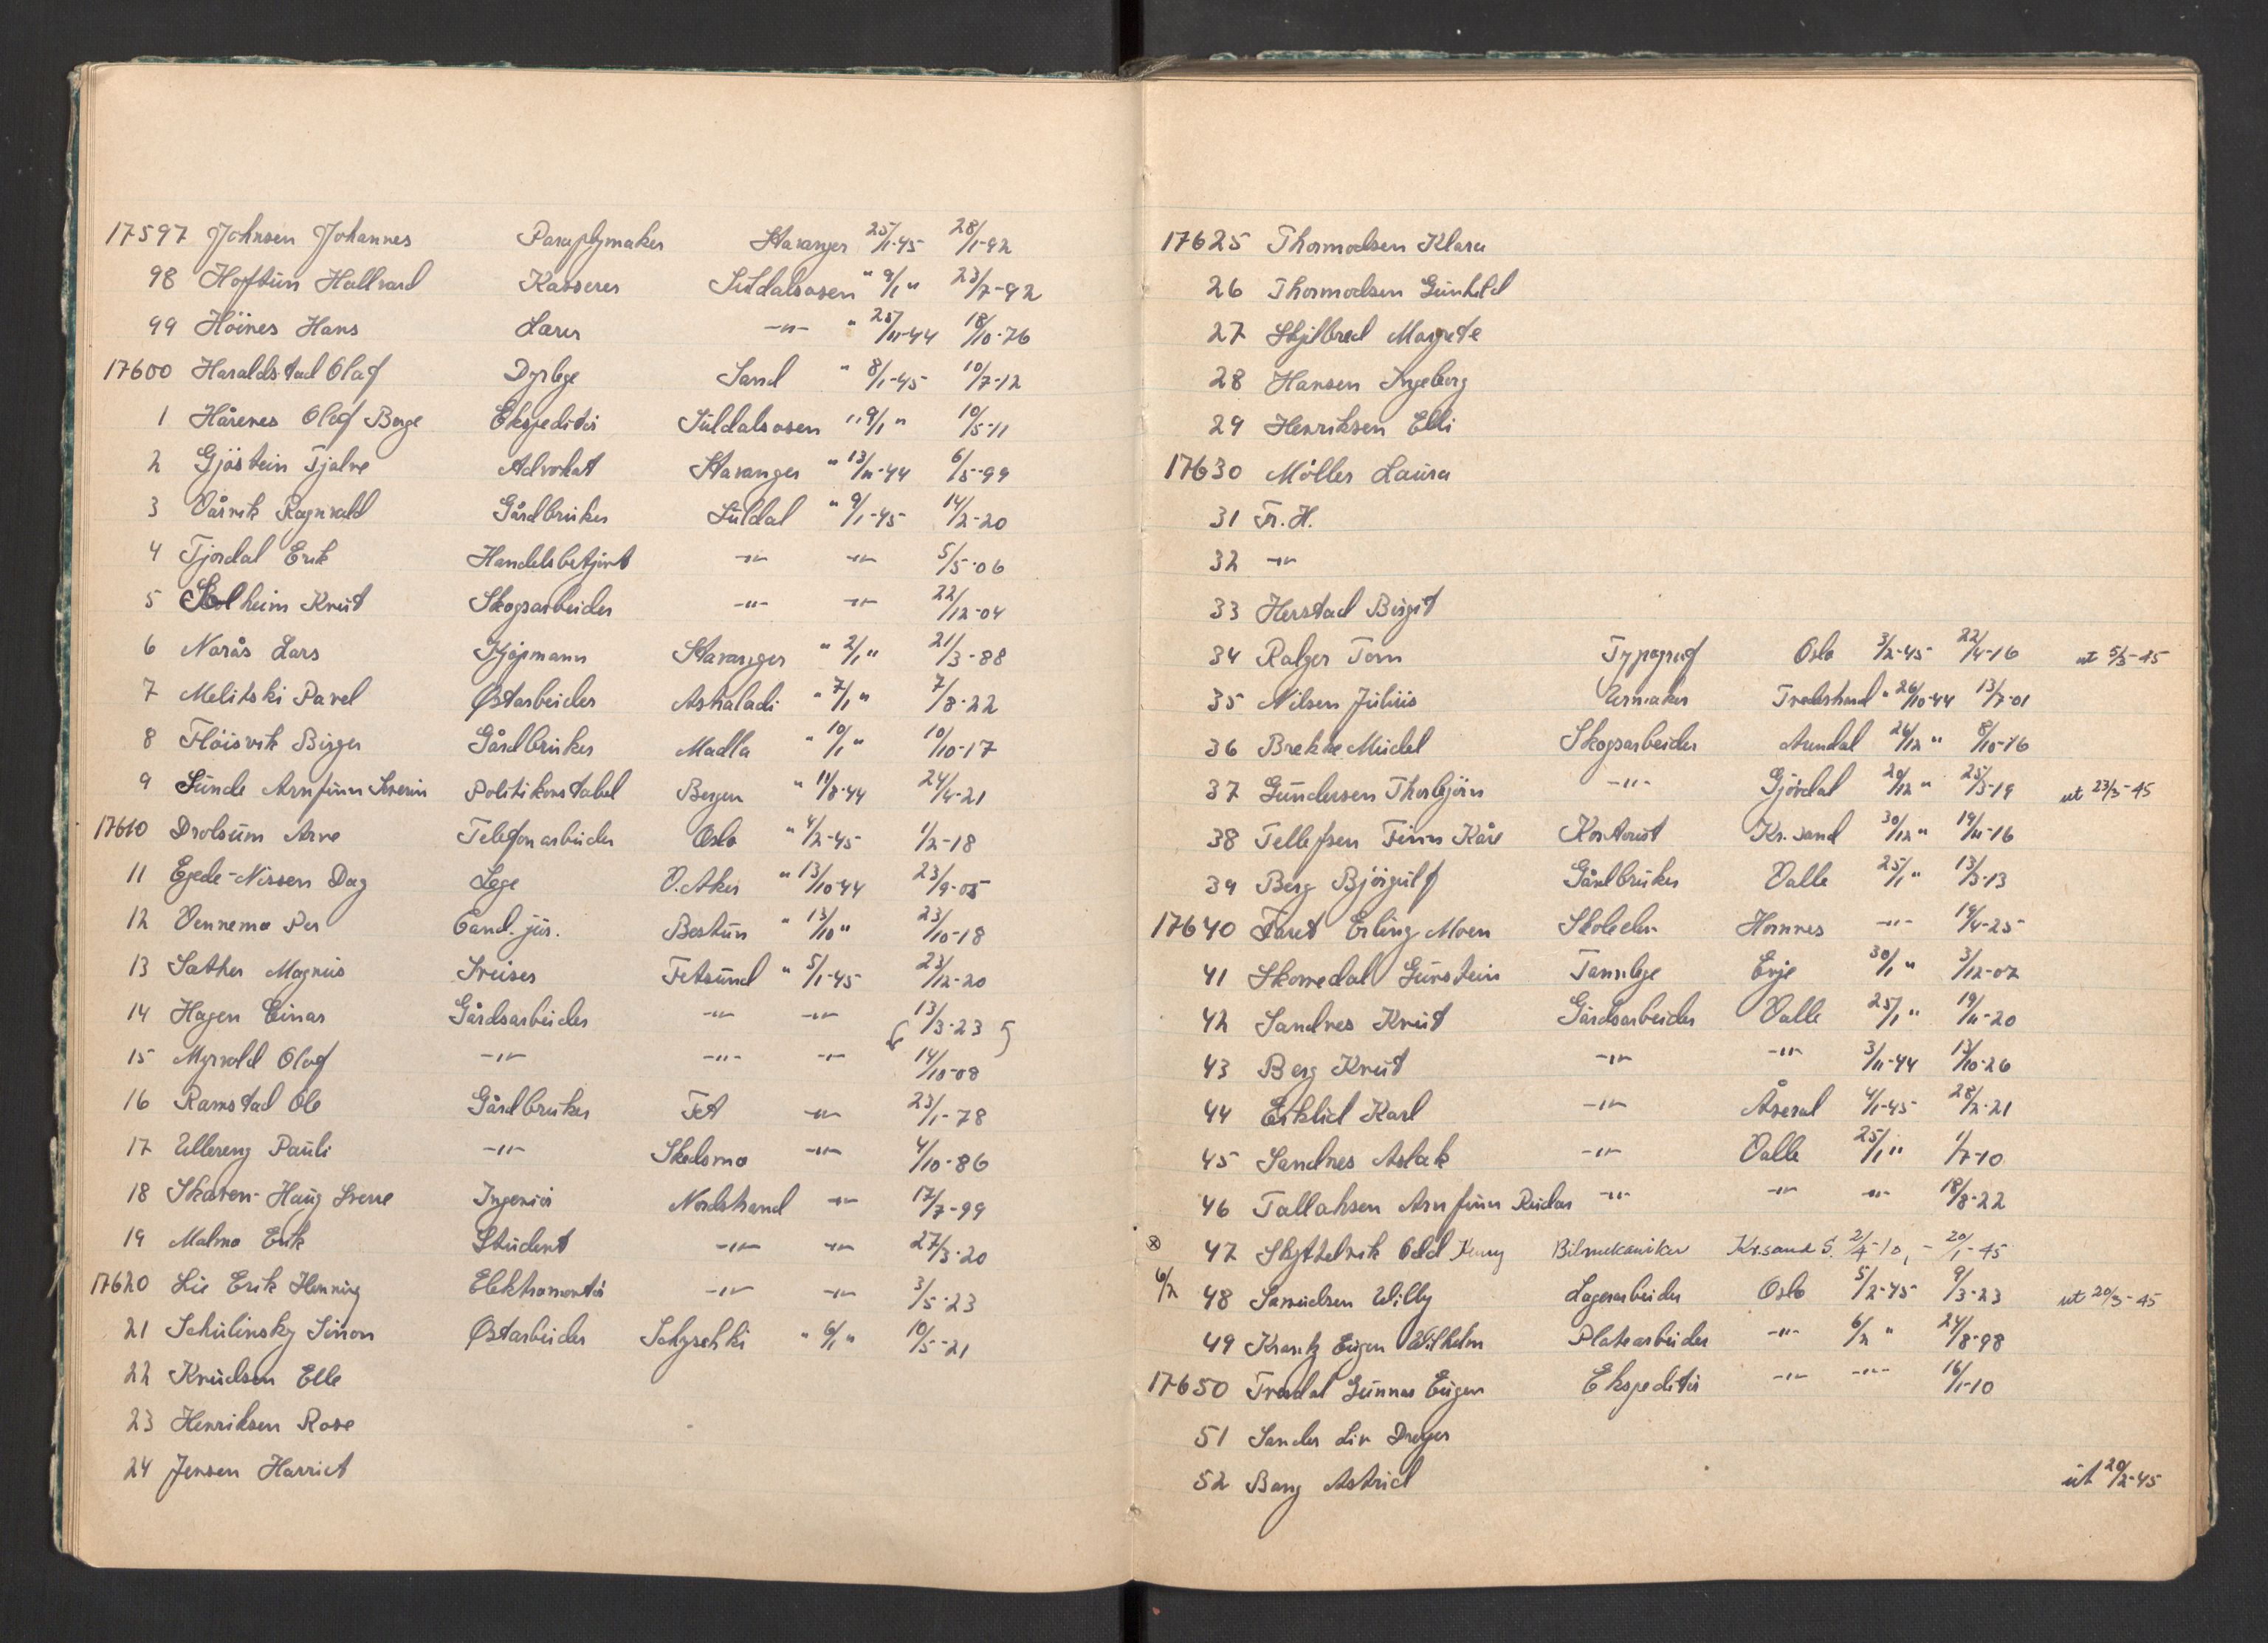 17597 Johnsen Johannes Paraplymaker Stavanger 25/1-45 28/1-92
98 Hoftun Hallvard Kasserer Suldalsosen " 9/1 " 23/7-92
99 Höines Hans Lærer -"- " 25/11-44 18/10-76
17600 Haraldstad Olaf Dyrlege Sand " 8/1-45 10/7-12
1 Hårenes Olaf Berge Ekspeditör Suldalsosen " 9/1 " 10/5-11
2 Gjöstein Tjalve Advokat Stavanger " 13/11-44 6/5-99
3 Vårvik Ragnvald Gårdbruker Suldal " 9/1-45 14/2-20
4 Tjordal Erik Handelsbetjent -"- -"- 5/5-06
5 Solheim Knut Skogsarbeider -"- -"- 22/12-04
6 Narås Lars Kjöpmann Stavanger " 2/1 " 21/3-88
7 Melitski Pavel Østarbeider Askaladi " 7/1 " 7/8-22
8 Flöisvik Birger Gårdbruker Madla " 10/1 " 10/10-17
9 Sunde Arnfinn Severin Politikonstabel Bergen " 11/8-44 24/4-21
17610 Drolsum Arne Telefonarbeider Oslo " 4/2-45 1/2-18
11 Egede-Nissen Dag Lege V. Aker " 13/10-44 23/9-05
12 Vennemo Per Cand. jur. Bestun " 13/10 " 23/10-18
13 Sæther Magnus Sveiser Fetsund " 5/1-45 23/12-20
14 Hagen Einar Gårdsarbeider -"- -"- 13/3-23
15 Myrvold Olaf -"- -"- -"- 14/10-08
16 Ramstad Ole Gårdbruker Fet -"- 23/1-78
17 Ullereng Pauli -"- Skedsmo -"- 4/10-86
18 Skaven-Haug Sverre Ingeniör Nordstrand -"- 17/7-99
19 Malmo Erik Student -"- -"- 27/3-20
17620 Lie Erik Henning Elektromontör -"- -"- 3/5-23
21 Schulinsky Simon Østarbeider Schysehki " 6/1 " 10/5-21
22 Knudsen Elle
23 Henriksen Rose
24 Jensen Harriet
17625 Thormodsen Klara
26 Thormodsen Gunhild
27 Skjelbred Margrete
28 Hansen Ingeborg
29 Henriksen Elli
17630 Möller Laura
31 Fr. H.
32 -"-
33 Herstad Birgit
34 Ralger Tom Typograf Oslo 3/2-45 22/4-16 ut 5/3-45
35 Nilsen Julius Urmaker Tvedestrand " 26/10-44 13/7-01
36 Brekke Mickel Skogsarbeider Arendal 26/12 " 8/10-16
37 Gundersen Thorbjörn -"- Gjövdal 20/12 " 25/3-19 ut 23/3-45
38 Tellefsen Finn Kåre Kontorist Kr.sand 30/12 " 19/11-16
39 Berg Björgulf Gårdbruker Valle 25/1 " 13/3-13
17640 Faret Erling Moen Skoleelev Hornnes -"- 19/4-25
41 Skomedal Gunstein Tannlege Evje 30/1 " 3/12-07
42 Sandnes Knut Gårdsarbeider Valle 25/1 " 19/11-20
43 Berg Knut -"- -"- 3/11-44 13/10-26
44 Eiklid Karl -"- Åseral 4/1-45 28/2-21
45 Sandnes Aslak -"- Valle 25/1 " 1/7-10
46 Tallaksen Arnfinn Reidar -"- -"- -"- 18/8-22
⊗ 47 Skyttelvik Odd Kenny Bilmekaniker Kr.sand S. 2/4-10, - 20/1-45
6/2 48 Samuelsen Willy Lagerarbeider Oslo 5/2-45 9/3-23 ut 20/3-45
49 Krantz Eugen Wilhelm Platearbeider -"- 6/2 " 24/8-98
17650 Tresdal Gunnar Eugen Ekspeditör -"- -"- 16/1-10
51 Sander Liv Dreyer
52 Bang Astrid ut 20/2-45